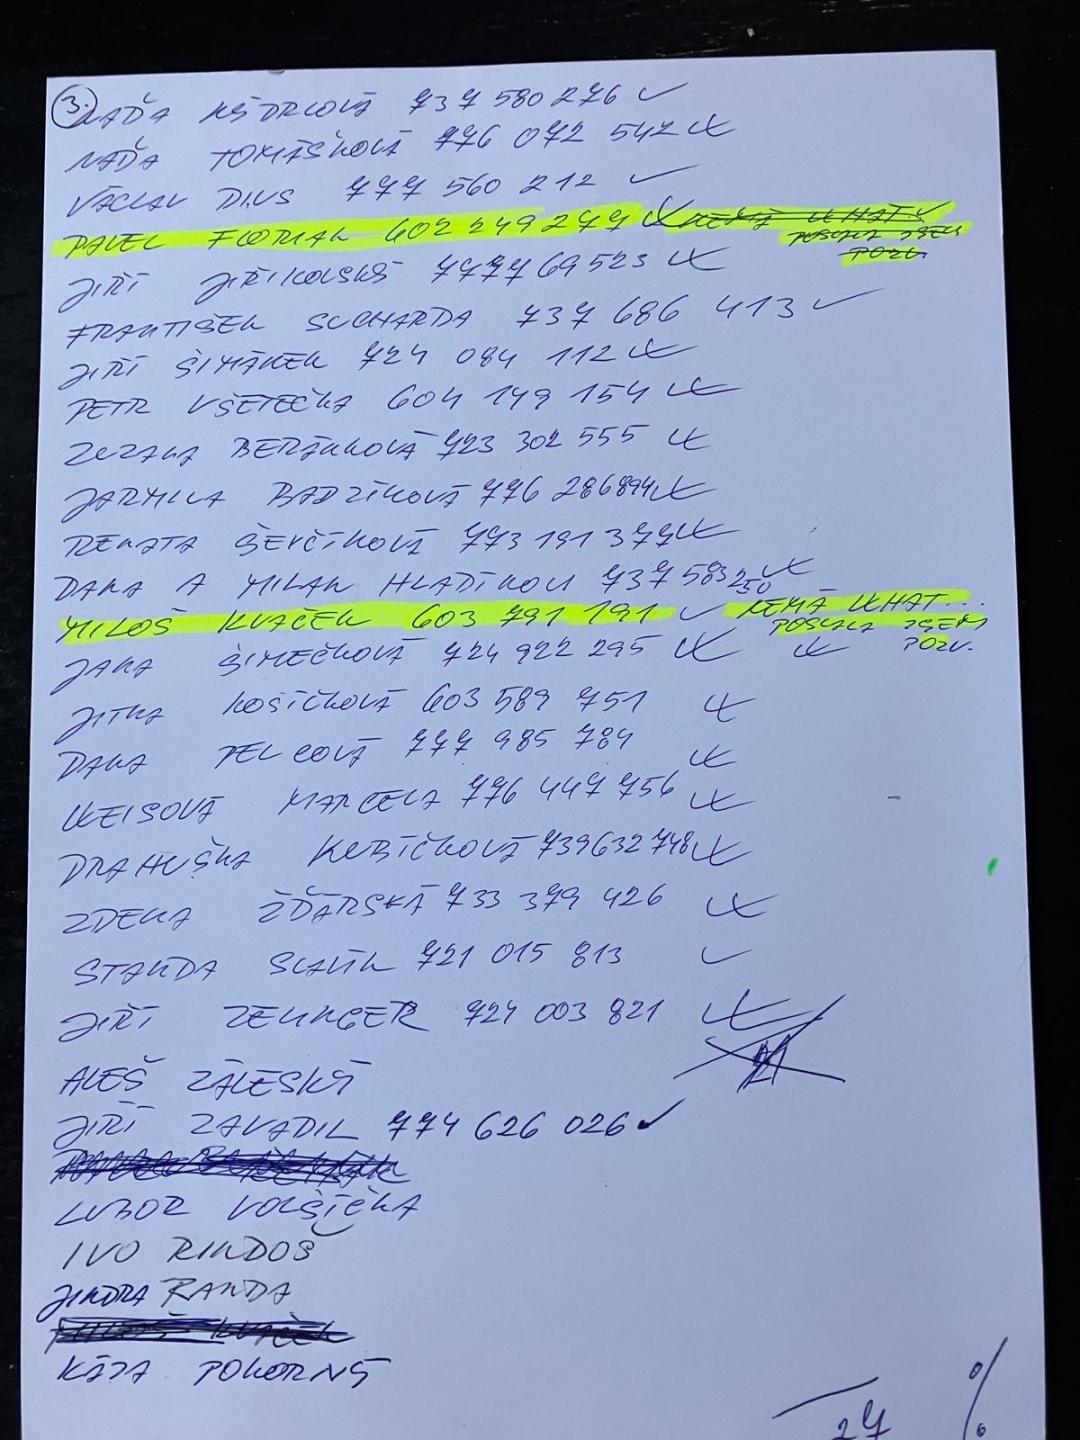 3. NAĎA KŠDRLOVÁ 737 580 276 ✓
NAĎA TOMÁŠKOVÁ 776 072 542
VÁCLAV DIVS 777 560 212 ✓
PAVEL FLORIAN 602 249 277 NEMÁ WHAT.
POSLALA JSEM
POZV.
JIŘÍ JIŘIKOVSKÝ 777769523
FRANTIŠEK SUCHARDA 737 686 413 ✓
JIŘÍ ŠIMÁNEK 724 084 112
PETR VŠETEČKA 604 149 154
ZUZANA BERÁNKOVÁ 723 302 555
JARMILA BADZÍKOVÁ 776 286894
RENATA ŠEVČÍKOVÁ 773 191 377
DANA A MILAN HLADÍKOVI 737 583 250
MILOŠ KVAČEK 603 791 191 ✓ NEMÁ WHAT...
POSLALA JSEM
POZV.
JANA ŠIMEČKOVÁ 724 922 295
JITKA KOŠÍČKOVÁ 603 589 751
DANA PELCOVÁ 777 985 784
WEISOVÁ MARCELA 776 447 756
DRAHUŠKA KUBÍČKOVÁ 739632748
ZDENA ŽĎÁRSKÁ 733 379 426
STANDA SLAVÍK 721 015 813 ✓
JIŘÍ ZELINGER 724 003 821
ALEŠ ZÁLESKÝ
JIŘÍ ZAVADIL 774 626 026 ✓
LUBOR VOLŠIČKA
IVO RINDOŠ
JINDRA RANDA
MILOŠ KVAČEK
KÁJA POKORNÝ
27 %